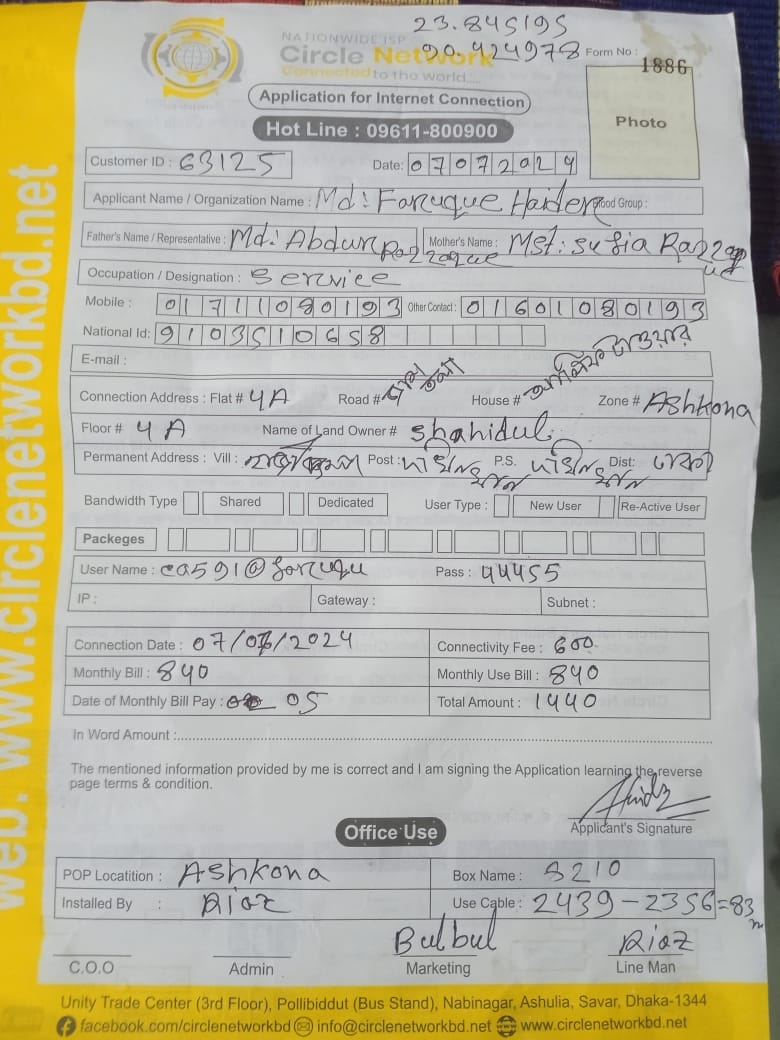 23.845195
NATIONWIDE ISP
Circle Network 90.424978 Form No :
Connected to the world.... 1886
Application for Internet Connection
Photo
Hot Line : 09611-800900
Customer ID : 63125 Date: 07072024
Applicant Name / Organization Name : Md: Faruque Haider Blood Group :
Father's Name / Representative : Md: Abdur Razzaque Mother's Name : Mst: Sufia Razzaque
Occupation / Designation : Service
Mobile : 01711080193 Other Contact : 01601080193
National Id: 9103510658
E-mail :
Connection Address : Flat # 4A Road # House # Zone # Ashkona
Floor # 4A Name of Land Owner # Shahidul
Permanent Address : Vill : Post : P.S. Dist:
Bandwidth Type Shared Dedicated User Type : New User Re-Active User
Packeges
User Name : Pass : 44455
IP : Gateway : Subnet :
Connection Date : 07/07/2024 Connectivity Fee : 600
Monthly Bill : 840 Monthly Use Bill : 840
Date of Monthly Bill Pay : 05 Total Amount : 1440
In Word Amount :
The mentioned information provided by me is correct and I am signing the Application learning the reverse
page terms & condition.
Applicant's Signature
Office Use
POP Locatition : Ashkona Box Name : 8210
Installed By : Riaz Use Cable : 2439-2356=83 m
Bulbul Riaz
C.O.O Admin Marketing Line Man
Unity Trade Center (3rd Floor), Pollibiddut (Bus Stand), Nabinagar, Ashulia, Savar, Dhaka-1344
facebook.com/circlenetworkbd info@circlenetworkbd.net www.circlenetworkbd.net
web: www.circlenetworkbd.net